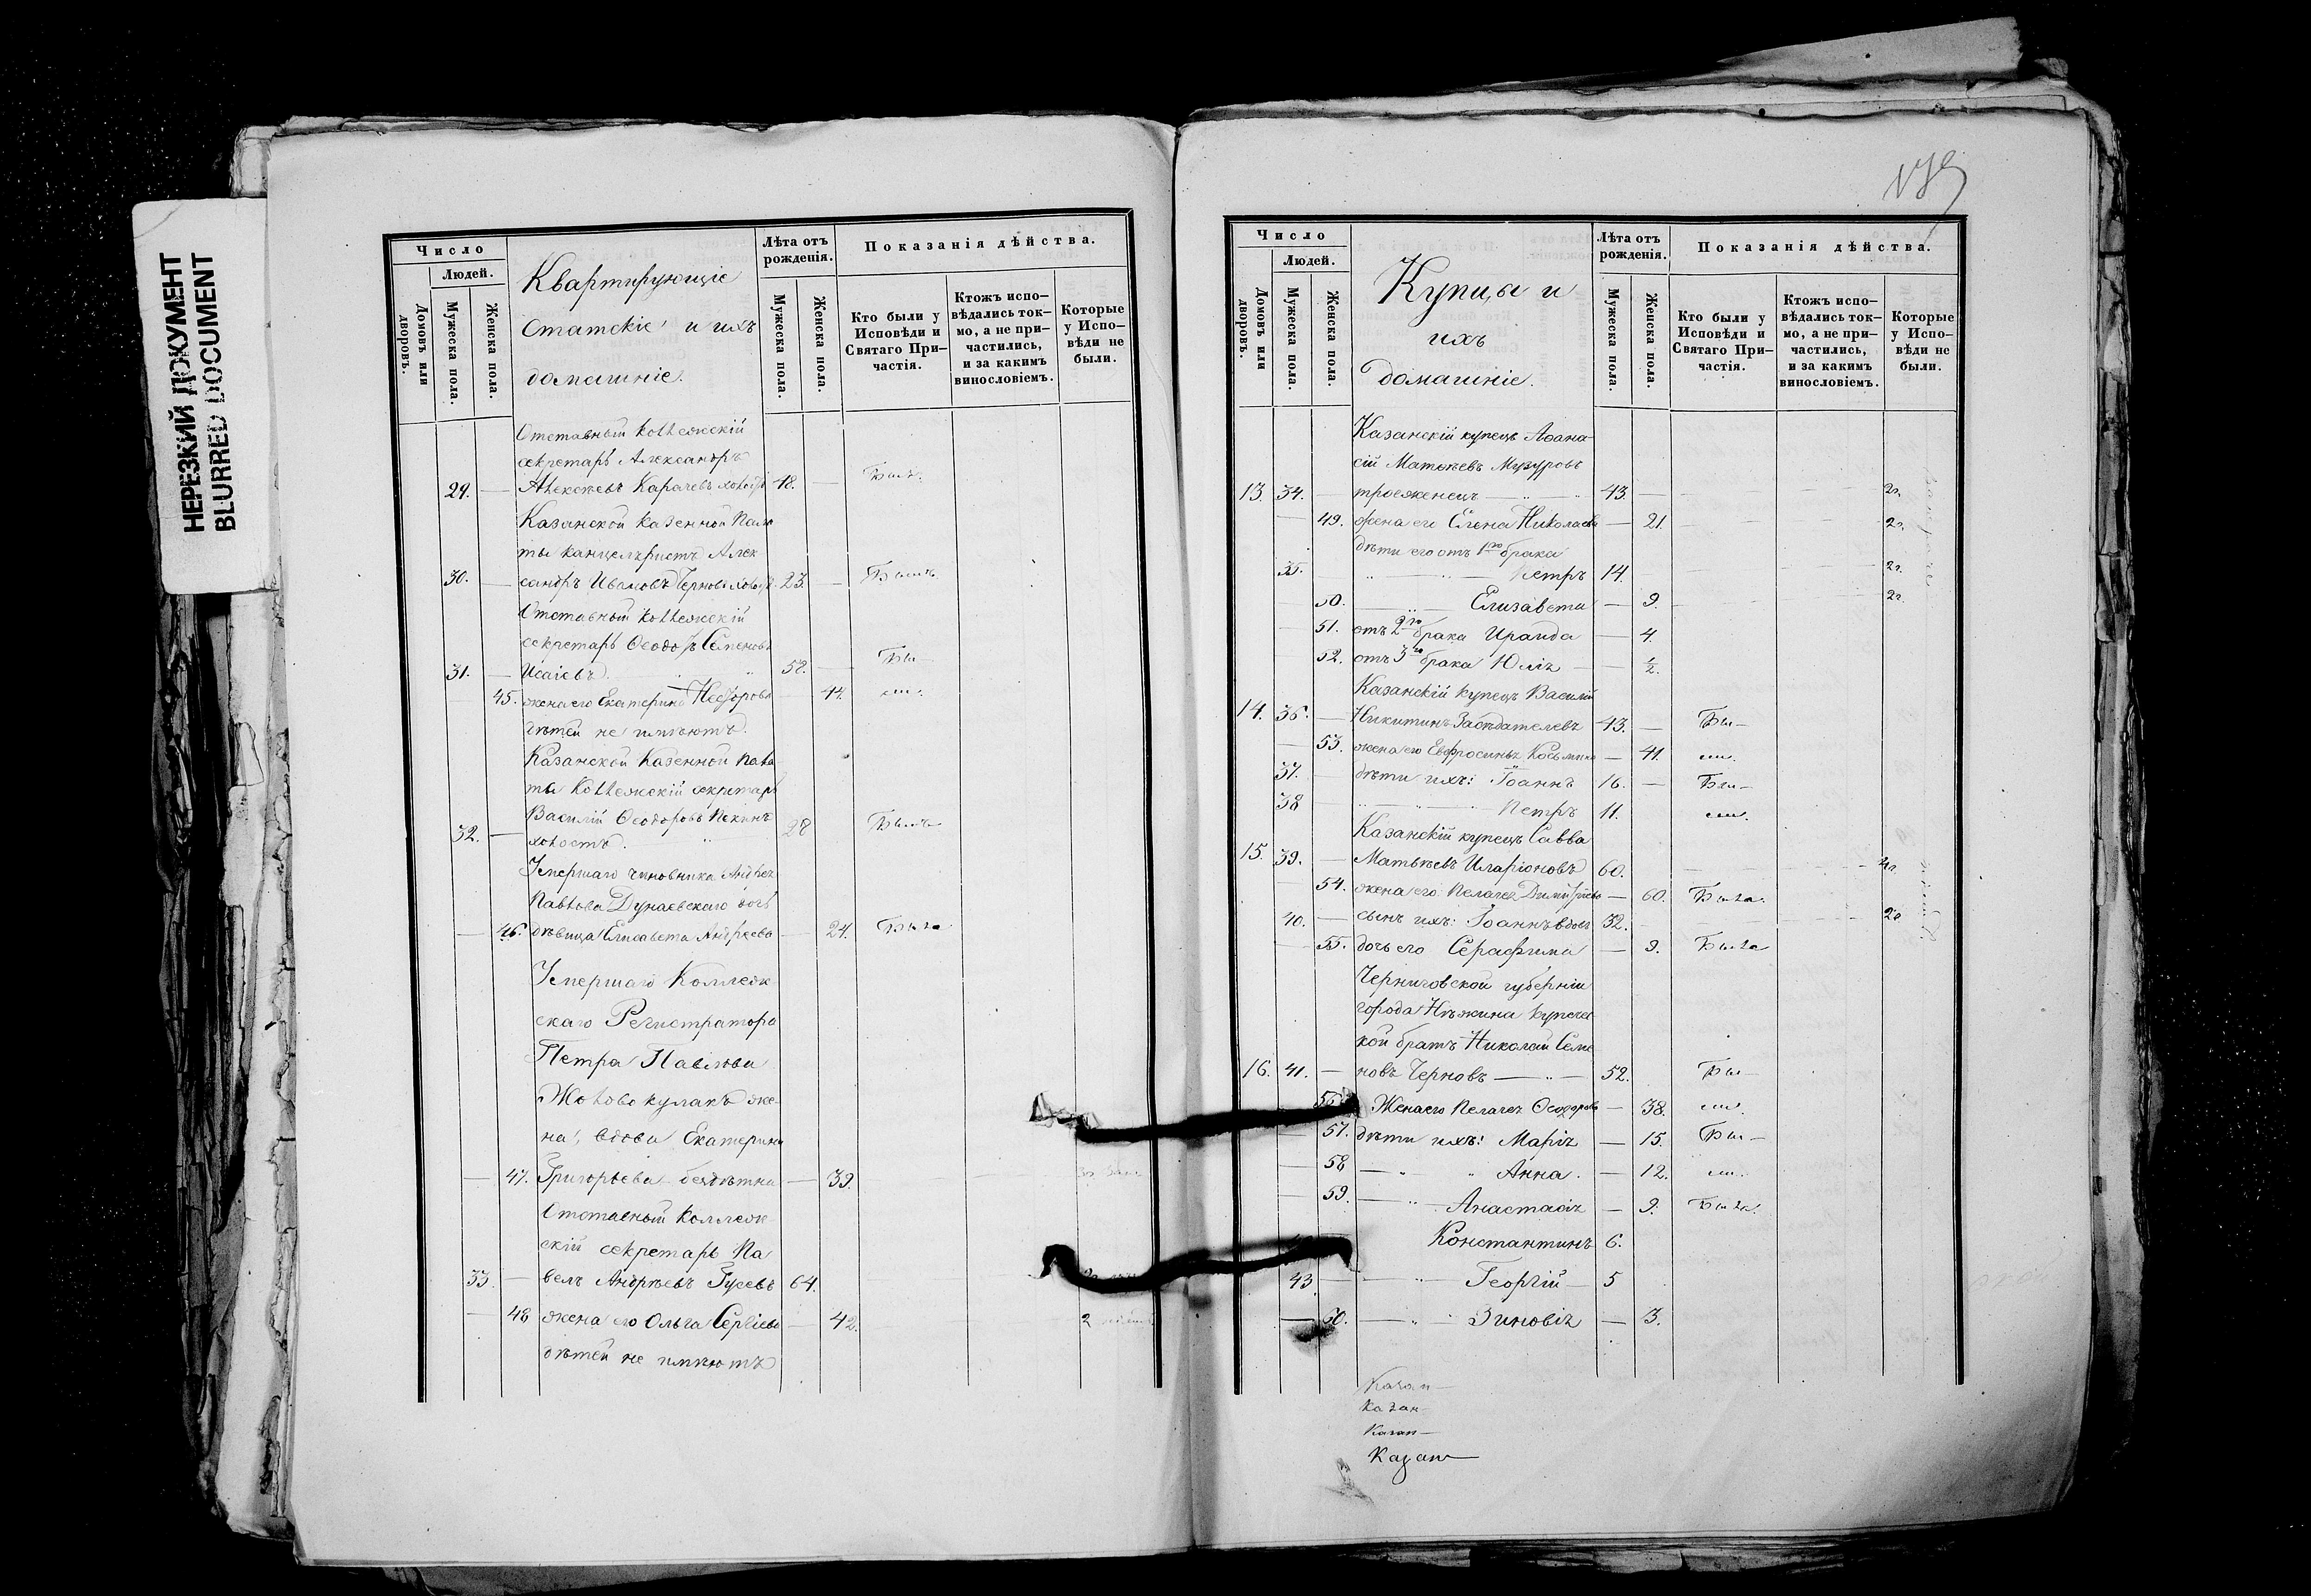 НЕРЕЗКИЙ ДОКУМЕНТ
BLURRED DOCUMENT
Число
Людей.
Домовъ или дворовъ.
Мужеска пола.
Женска пола.
Квартирующіе
статскіе и ихъ
домашніе.
Лѣта отъ рожденія.
Мужеска пола.
Женска пола.
Показанія дѣйства.
Кто были у Исповѣди и Святаго Причастія.
Ктожъ исповѣдались токмо, а не причастились, и за какимъ винословіемъ.
Которые у Исповѣди не были.
Отставный коллежскій
секретарь Александръ
29. — Алексѣевъ Карачевъ холостъ 48. — Былъ.
Казанской Казенной Пала
ты канцеляристъ Алек
30. — сандръ Ивановъ Черновъ холостъ 23. — Былъ
Отставный коллежскій
секретарь Ѳеодоръ Семеновъ
31. — Исаіевъ 52. — Бы—
45. жена его Екатерина — 44. ли.
дѣтей не имѣютъ.
Казанской Казенной Пала
ты Коллежскій секретарь
Василій Ѳеодоровъ Пекинъ
32. — холостъ. 28 Былъ
Умершаго чиновника Андрея
Павлова Дунаевскаго дочь
— 46. дѣвица Елисавета Андреева — 24. Была
Умершаго Коллеж
скаго Регистратора
Петра Павлова
же-
на, вдова Екатерина
— 47. Григорьева бездѣтна — 39.
Отставный Коллеж
скій секретарь Па
33. — велъ Андреевъ Гусевъ 64.
— 48 жена его Ольга Сергіева — 42. 2
дѣтей не имѣютъ
139
Число
Людей.
Домовъ или дворовъ.
Мужеска пола.
Женска пола.
Купцы и
ихъ
домашніе.
Лѣта отъ рожденія.
Мужеска пола.
Женска пола.
Показанія дѣйства.
Кто были у Исповѣди и Святаго Причастія.
Ктожъ исповѣдались токмо, а не причастились, и за какимъ винословіемъ.
Которые у Исповѣди не были.
Казанскій купецъ Аѳана
сій Матвѣевъ Музуровъ
13. 34. — троеженецъ — 43. — 2г.
— 49. жена его Елена Николаева — 21. 2г.
дѣти его отъ 1го брака
35. Петръ 14. 2г.
50. Елизавета — 9. 2г.
51. отъ 2го брака Ираида — 4.
52. отъ 3го брака Юлія — ½.
Казанскій купецъ Василій
14. 36. — Никитинъ Засѣдателевъ 43. — Бы—
— 53. жена его Евфросинья Косьмина — 41. ли.
37. — дѣти ихъ: Іоаннъ 16. — Бы—
38 — Петръ 11. ли.
Казанскій купецъ Савва
15. 39. — Матвѣевъ Иларіоновъ 60. 2г.
— 54. жена его: Пелагея Димитріева — 60. Была.
40. — сынъ ихъ: Іоаннъ вдовъ 32. 2г
— 55. дочь его Серафима — 9. Была
Черниговской губерніи
города Нѣжина купече
кой братъ Николай Семе
16. 41. — новъ Черновъ — 52. Бы—
56. Жена его Пелагея Ѳеодорова — 38. ли.
57. дѣти ихъ: Марія — 15. Бы—
— 58 Анна. — 12. ли.
— 59. Анастасія — 9. Была.
Константинъ 6.
43 — Георгій — 5
— 60. Зиновія — 3.
Казан—
Казан
Казан—
Казан